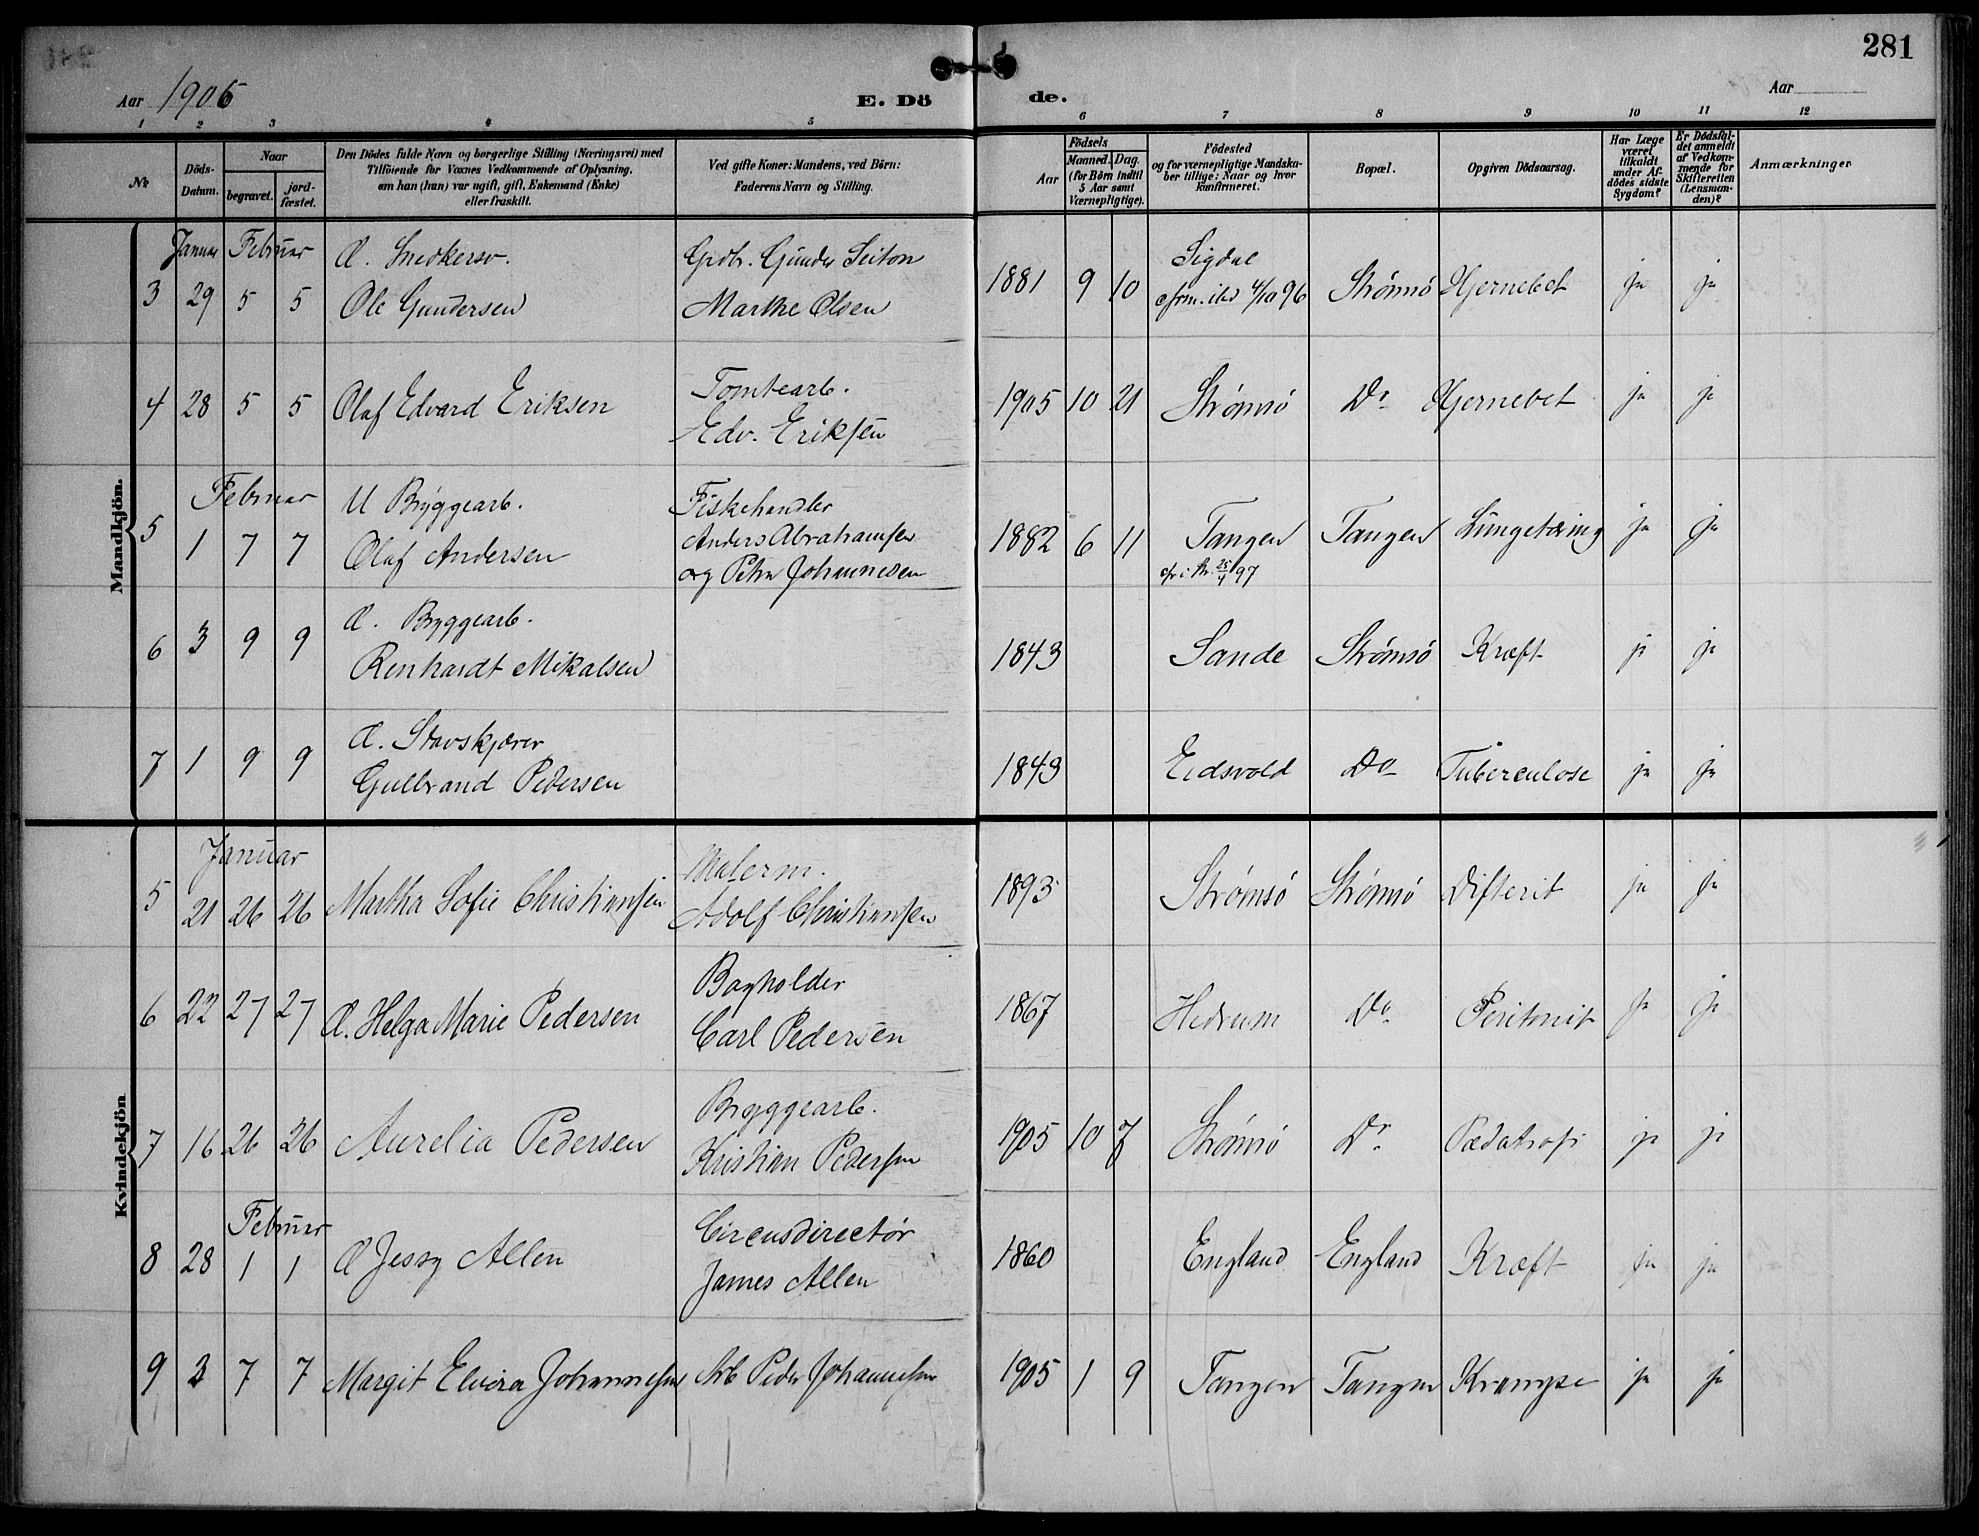 281
Aar 1906
E. Dö
de.
Aar
1 2 3 4 5 6 7 8 9 10 11 12
Nr
Döds-
Datum.
Naar
begravet.
jord-
fæstet.
Den Dödes fulde Navn og borgerlige Stilling (Næringsvei) med
Tilföiende for Voxnes Vedkommende af Oplysning,
om han (hun) var ugift, gift, Enkemand (Enke)
eller fraskilt.
Ved gifte Koner: Mandens, ved Börn:
Faderens Navn og Stilling.
Födsels
Aar
Maaned. Dag.
(for Börn indtil
5 Aar samt
Værnepligtige).
Födested
og for værnepligtige Mandska-
ber tillige: Naar og hvor
konfirmeret.
Bopæl.
Opgiven Dödsaarsag.
Har Læge
været
tilkaldt
under Af-
dödes sidste
Sygdom?
Er Dödsfal-
det anmeldt
af Vedkom-
mende for
Skifteretten
(Lensman-
den)?
Anmærkninger
Mandkjön.
Januar Februar Æ. Snedkersv. Grdbr. Gunder Seiton Sigdal
3 29 5 5 Ole Gundersen Marthe Olsen 1881 9 10 cfrm. ibd 4/10 96 Strømsø Hjernebet ja ja
Tomtearb.
4 28 5 5 Olaf Edvard Eriksen Edv. Eriksen 1905 10 21 Strømsø Do Hjernebet ja ja
Februar U Bryggearb. Fiskehandler
5 1 7 7 Olaf Andersen Anders Abrahamsen 1882 6 11 Tangen Tangen Lungetæring ja ja
og Petra Johannesen 25/4 97
Æ. Bryggearb.
6 3 9 9 Renhardt Mikalsen 1843 Sande Strømsø Kræft ja ja
Æ. Stavskjærer
7 1 9 9 Gulbrand Pedersen 1843 Eidsvold Do Tuberculose ja ja
Kvindekjön
Januar Malerm.
5 21 26 26 Martha Sofie Christiansen Adolf Christiansen 1893 Strømsø Strømsø Difterit ja ja
Bogholder
6 22 27 27 Æ. Helga Marie Pedersen Carl Pedersen 1867 Hedrum Do Peritonit ja ja
Bryggearb.
7 16 26 26 Aurelia Pedersen Kristian Pedersen 1905 10 7 Strømsø Do Pædatrofi ja ja
Februar Circusdirectør
8 28 1 1 Æ Jessy Allen James Allen 1860 England England Kræft ja ja
9 3 7 7 Margit Elvira Johannesen Arb Peder Johannesen 1905 1 9 Tangen Tangen Krampe ja ja